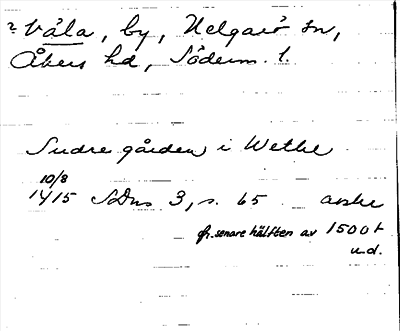 ? Våla, by, Helgarö sn,
Åkers hd, Söderm. l.
Sudregården i Wethle
10/8
1415 SDns 3, s. 65 avskr
fr. senare hälften av 1500t
u.d.